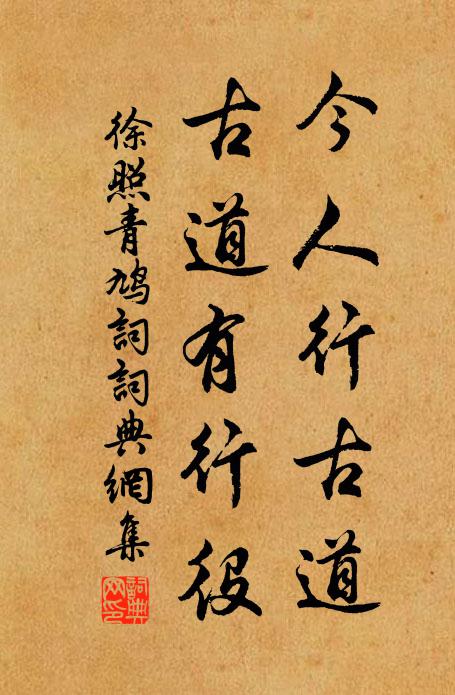 今人行古道
古道有行役
徐照青鳩詞詞典網集
詞典网印